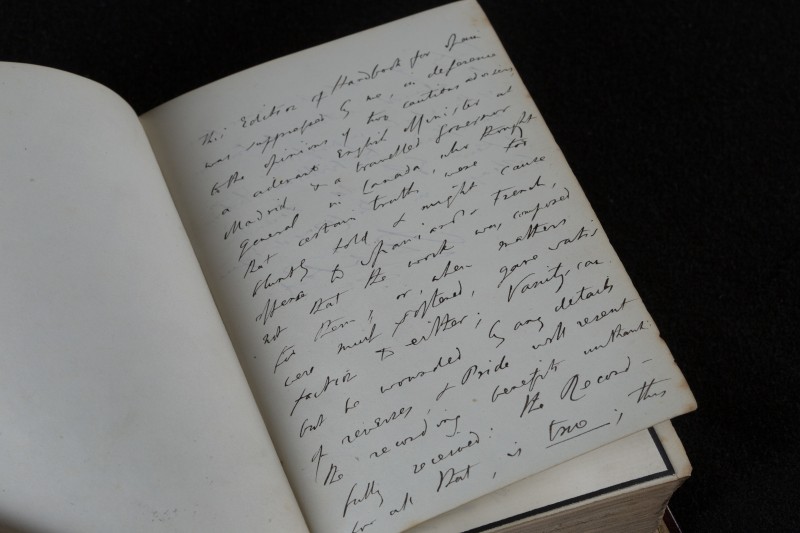 This Edition of Handbook for Spain
was suppressed by me, in deference
to the opinions of two cautious advisers,
a ci-devant English Minister at
Madrid & a travelled Governor
general in Canada, who thought
that certain truths were too
bluntly told & might cause
offense to Spaniards & French,
not that the work was composed
for them; or, when matters
were much softened, gave satis
faction to either; Vanity can
but be wounded by any details
of reverses, & Pride will resent
the recording benefits unthank
fully received: the Record —
for all that, is true; this